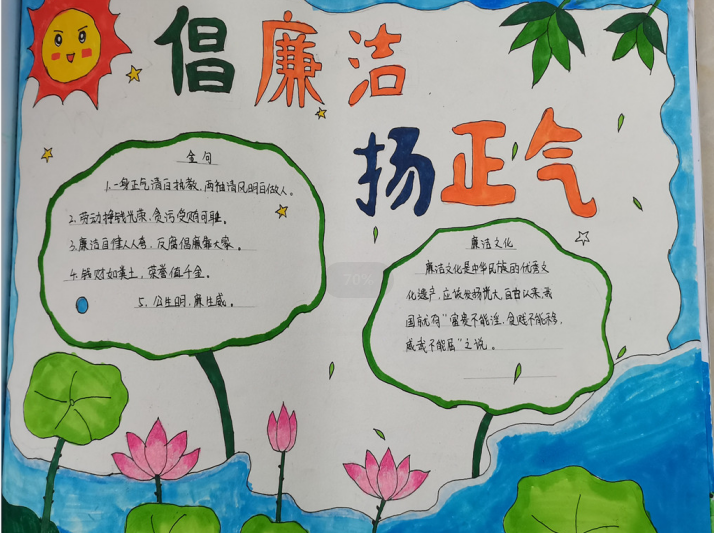 倡廉洁
扬正气
金句
1.一身正气清白执教、两袖清风明白做人。
2.劳动挣钱光荣、贪污受贿可耻。
3.廉洁自律人人夸，反腐倡廉靠大家。
4.钱财如粪土，荣誉值千金。
5.公生明，廉生威。
廉洁文化
廉洁文化是中华民族的优秀文
化遗产，应该发扬光大，自古以来，我
国就有“富贵不能淫，贫贱不能移，
威武不能屈”之说。
70%